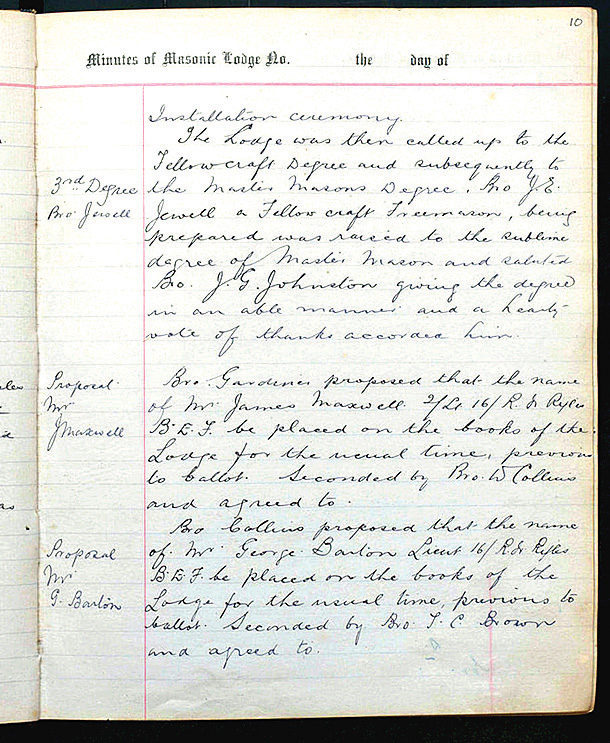 10
Minutes of Masonic Lodge No. the day of
Installation ceremony.
The Lodge was then called up to the
Fellowcraft Degree and subsequently to
3rd Degree
the Master Masons Degree. Bro J.E.
Bro Jewell
Jewell a Fellow craft Freemason, being
prepared was raised to the sublime
degree of Master Mason and saluted
Bro. J. G. Johnston giving the degree
in an able manner and a hearty
vote of thanks accorded him.
Proposal
Bro. Gardiner proposed that the name
Mr
of Mr James Maxwell 2/Lt 16/ R. Ir Rifles
J Maxwell
B.E.F. be placed on the books of the
Lodge for the usual time, previous
to ballot. Seconded by Bro. W Collins
and agreed to.
Bro Collins proposed that the name
Proposal
of Mr George Barton Lieut 16/ R. Ir Rifles
Mr
B.E.F. be placed on the books of the
G. Barton
Lodge for the usual time, previous to
ballot. Seconded by Bro. T. C. Brown
and agreed to.